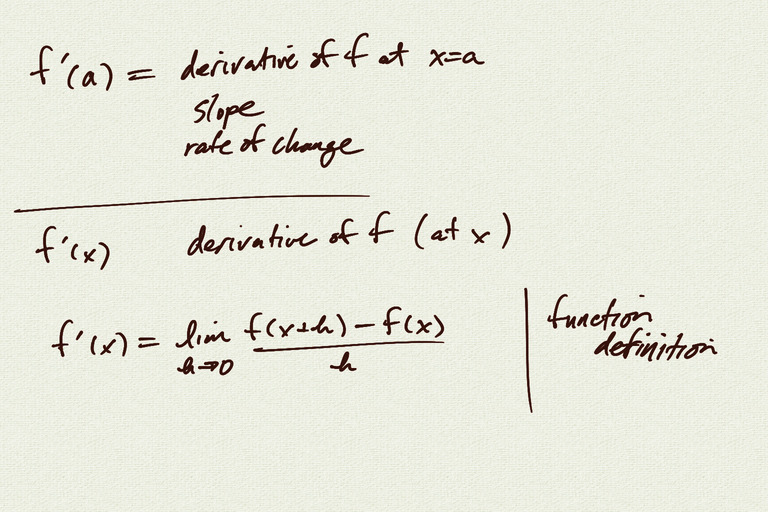 f'(a) = derivative of f at x=a
slope
rate of change
f'(x) derivative of f (at x)
f'(x) = lim h→0 f(x+h) - f(x) / h
function
definition